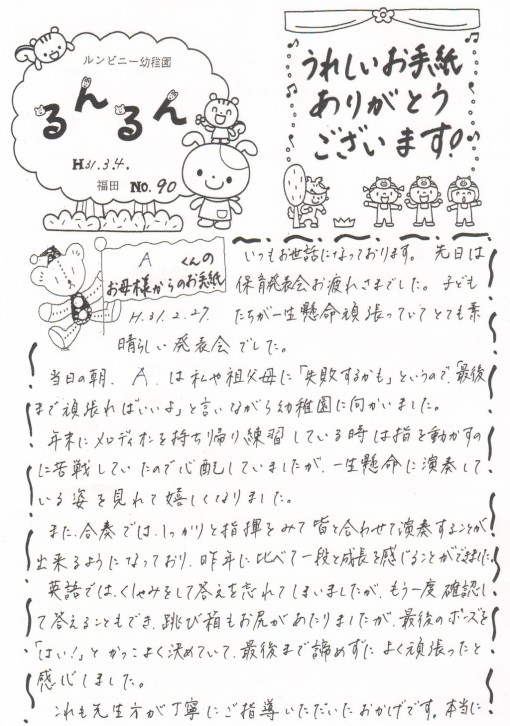 ルンビニー幼稚園
るんるん
H31.3.4.
福田 No.90
うれしいお手紙
ありがとう
ございます!
A くんの
お母様からのお手紙
H.31.2.27.
いつもお世話になっております。先日は
保育発表会お疲れさまでした。子ども
たちが一生懸命頑張っていてとても素
晴らしい発表会でした。
当日の朝、A は私や祖父母に「失敗するかも」というので、最後
まで頑張ればいいよ」と言いながら幼稚園に向かいました。
年末にメロディオンを持ち帰り練習している時は指を動かすの
に苦戦していたので心配していましたが、一生懸命に演奏して
いる姿を見れて嬉しくなりました。
また、合奏では、しっかりと指揮をみて皆と合わせて演奏することが
出来るようになっており、昨年に比べて一段と成長を感じることができました。
英語では、くしゃみをして答えを忘れてしまいましたが、もう一度確認し
て答えることもでき、跳び箱もお尻があたりましたが、最後のポーズを
「はい!」とかっこよく決めていて、最後まで諦めずによく頑張ったと
感心しました。
これも先生方が丁寧にご指導いただいたおかげです。本当に